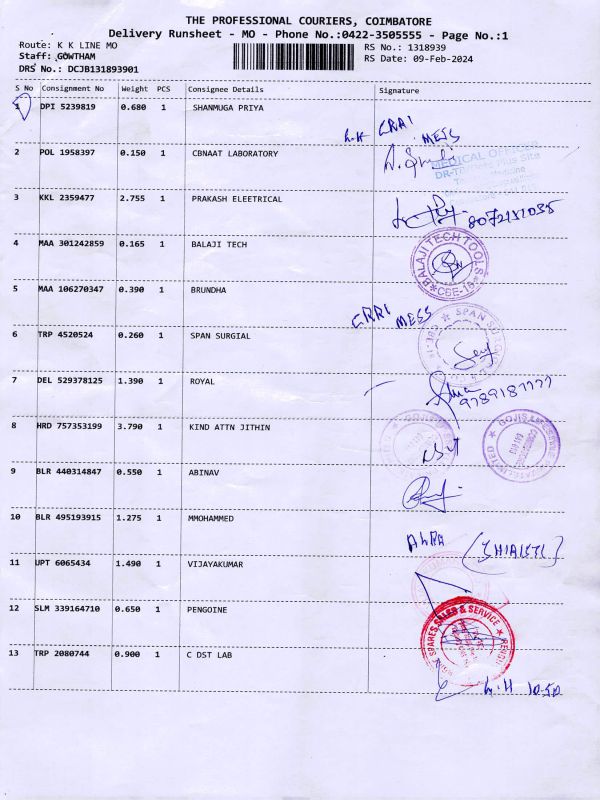 THE PROFESSIONAL COURIERS, COIMBATORE
Delivery Runsheet - MO - Phone No.:0422-3505555 - Page No.:1
Route: K K LINE MO
Staff: GOWTHAM
DRS No.: DCJB131893901
RS No.: 1318939
RS Date: 09-Feb-2024
S No Consignment No Weight PCS Consignee Details Signature
1 DPI 5239819 0.680 1 SHANMUGA PRIYA
L.H CRRI MESS
2 POL 1958397 0.150 1 CBNAAT LABORATORY
MEDICAL OFFICER
3 KKL 2359477 2.755 1 PRAKASH ELEETRICAL
4 MAA 301242859 0.165 1 BALAJI TECH
BALAJI TECH TOOLS
5 MAA 106270347 0.390 1 BRUNDHA
CRRI MESS
6 TRP 4520524 0.260 1 SPAN SURGIAL
SPAN
7 DEL 529378125 1.390 1 ROYAL
8 HRD 757353199 3.790 1 KIND ATTN JITHIN
9 BLR 440314847 0.550 1 ABINAV
10 BLR 495193915 1.275 1 MMOHAMMED
11 UPT 6065434 1.490 1 VIJAYAKUMAR
12 SLM 339164710 0.650 1 PENGOINE
SPARES SALES & SERVICE
13 TRP 2080744 0.900 1 C DST LAB
L.H 10-50